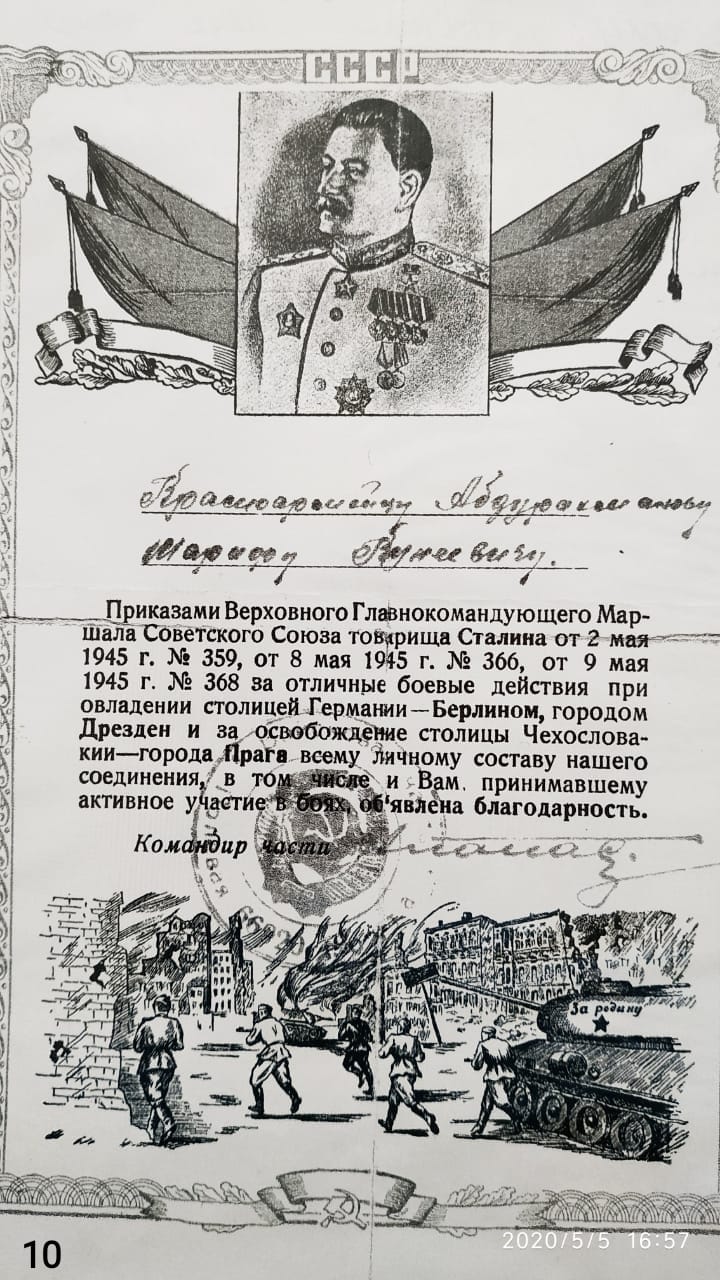 СССР
Красноармейцу Абдурахманову
Шарипу
Приказами Верховного Главнокомандующего Мар-
шала Советского Союза товарища Сталина от 2 мая
1945 г. № 359, от 8 мая 1945 г. № 366, от 9 мая
1945 г. № 368 за отличные боевые действия при
овладении столицей Германии—Берлином, городом
Дрезден и за освобождение столицы Чехослова-
кии—города Прага всему личному составу нашего
соединения, в том числе и Вам, принимавшему
активное участие в боях, об'явлена благодарность.
Командир части
За родину
10
2020/5/5 16:57